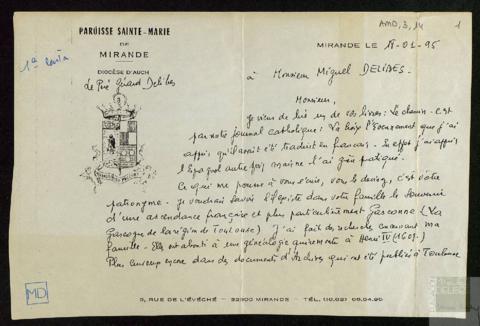 AMD, 3, 14
1
PAROISSE SAINTE-MARIE
DE
MIRANDE
DIOCÈSE D'AUCH
1ª carta
Le Père Gérard Delibes
MIRANDE LE 18-01-95
à Monsieur Miguel DELIBES.
Monsieur,
Je viens de lire un de vos livres: Le chemin - c'est
par notre journal catholique: La Croix l'Evènement que j'ai
appris qu'il avait été traduit en français. En effet j'ai appris
l'Espagnol autre fois mais ne l'ai guère pratiqué.
Ce qui me pousse à vous écrire, vous le devinez, c'est votre
patronyme. Je voudrais savoir s'il existe dans votre famille le souvenir
d'une ascendance française et plus particulièrement Gasconne (La
Gascogne de la région de Toulouse) J'ai fait des recherches concernant ma
famille - Elles ont abouti à une généalogie qui remonte à Henri IV (1607.)
Plus encore dans des documents d'Archives qui ont été publiés à Toulouse
MD
5, RUE DE L'ÉVÊCHÉ - 32300 MIRANDE - TÉL. (16.62)